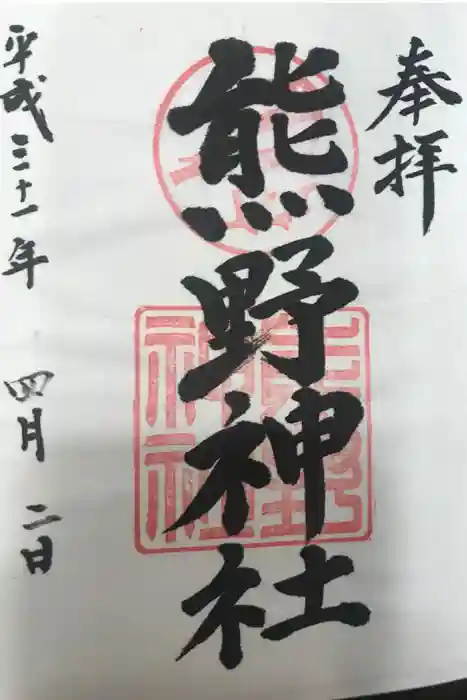 奉拝
熊野神社
平成三十一年 四月 二日
熊野
神社